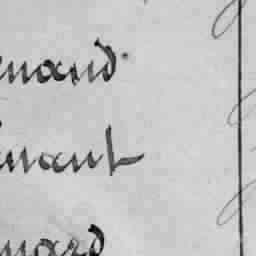 nand
nant
nard